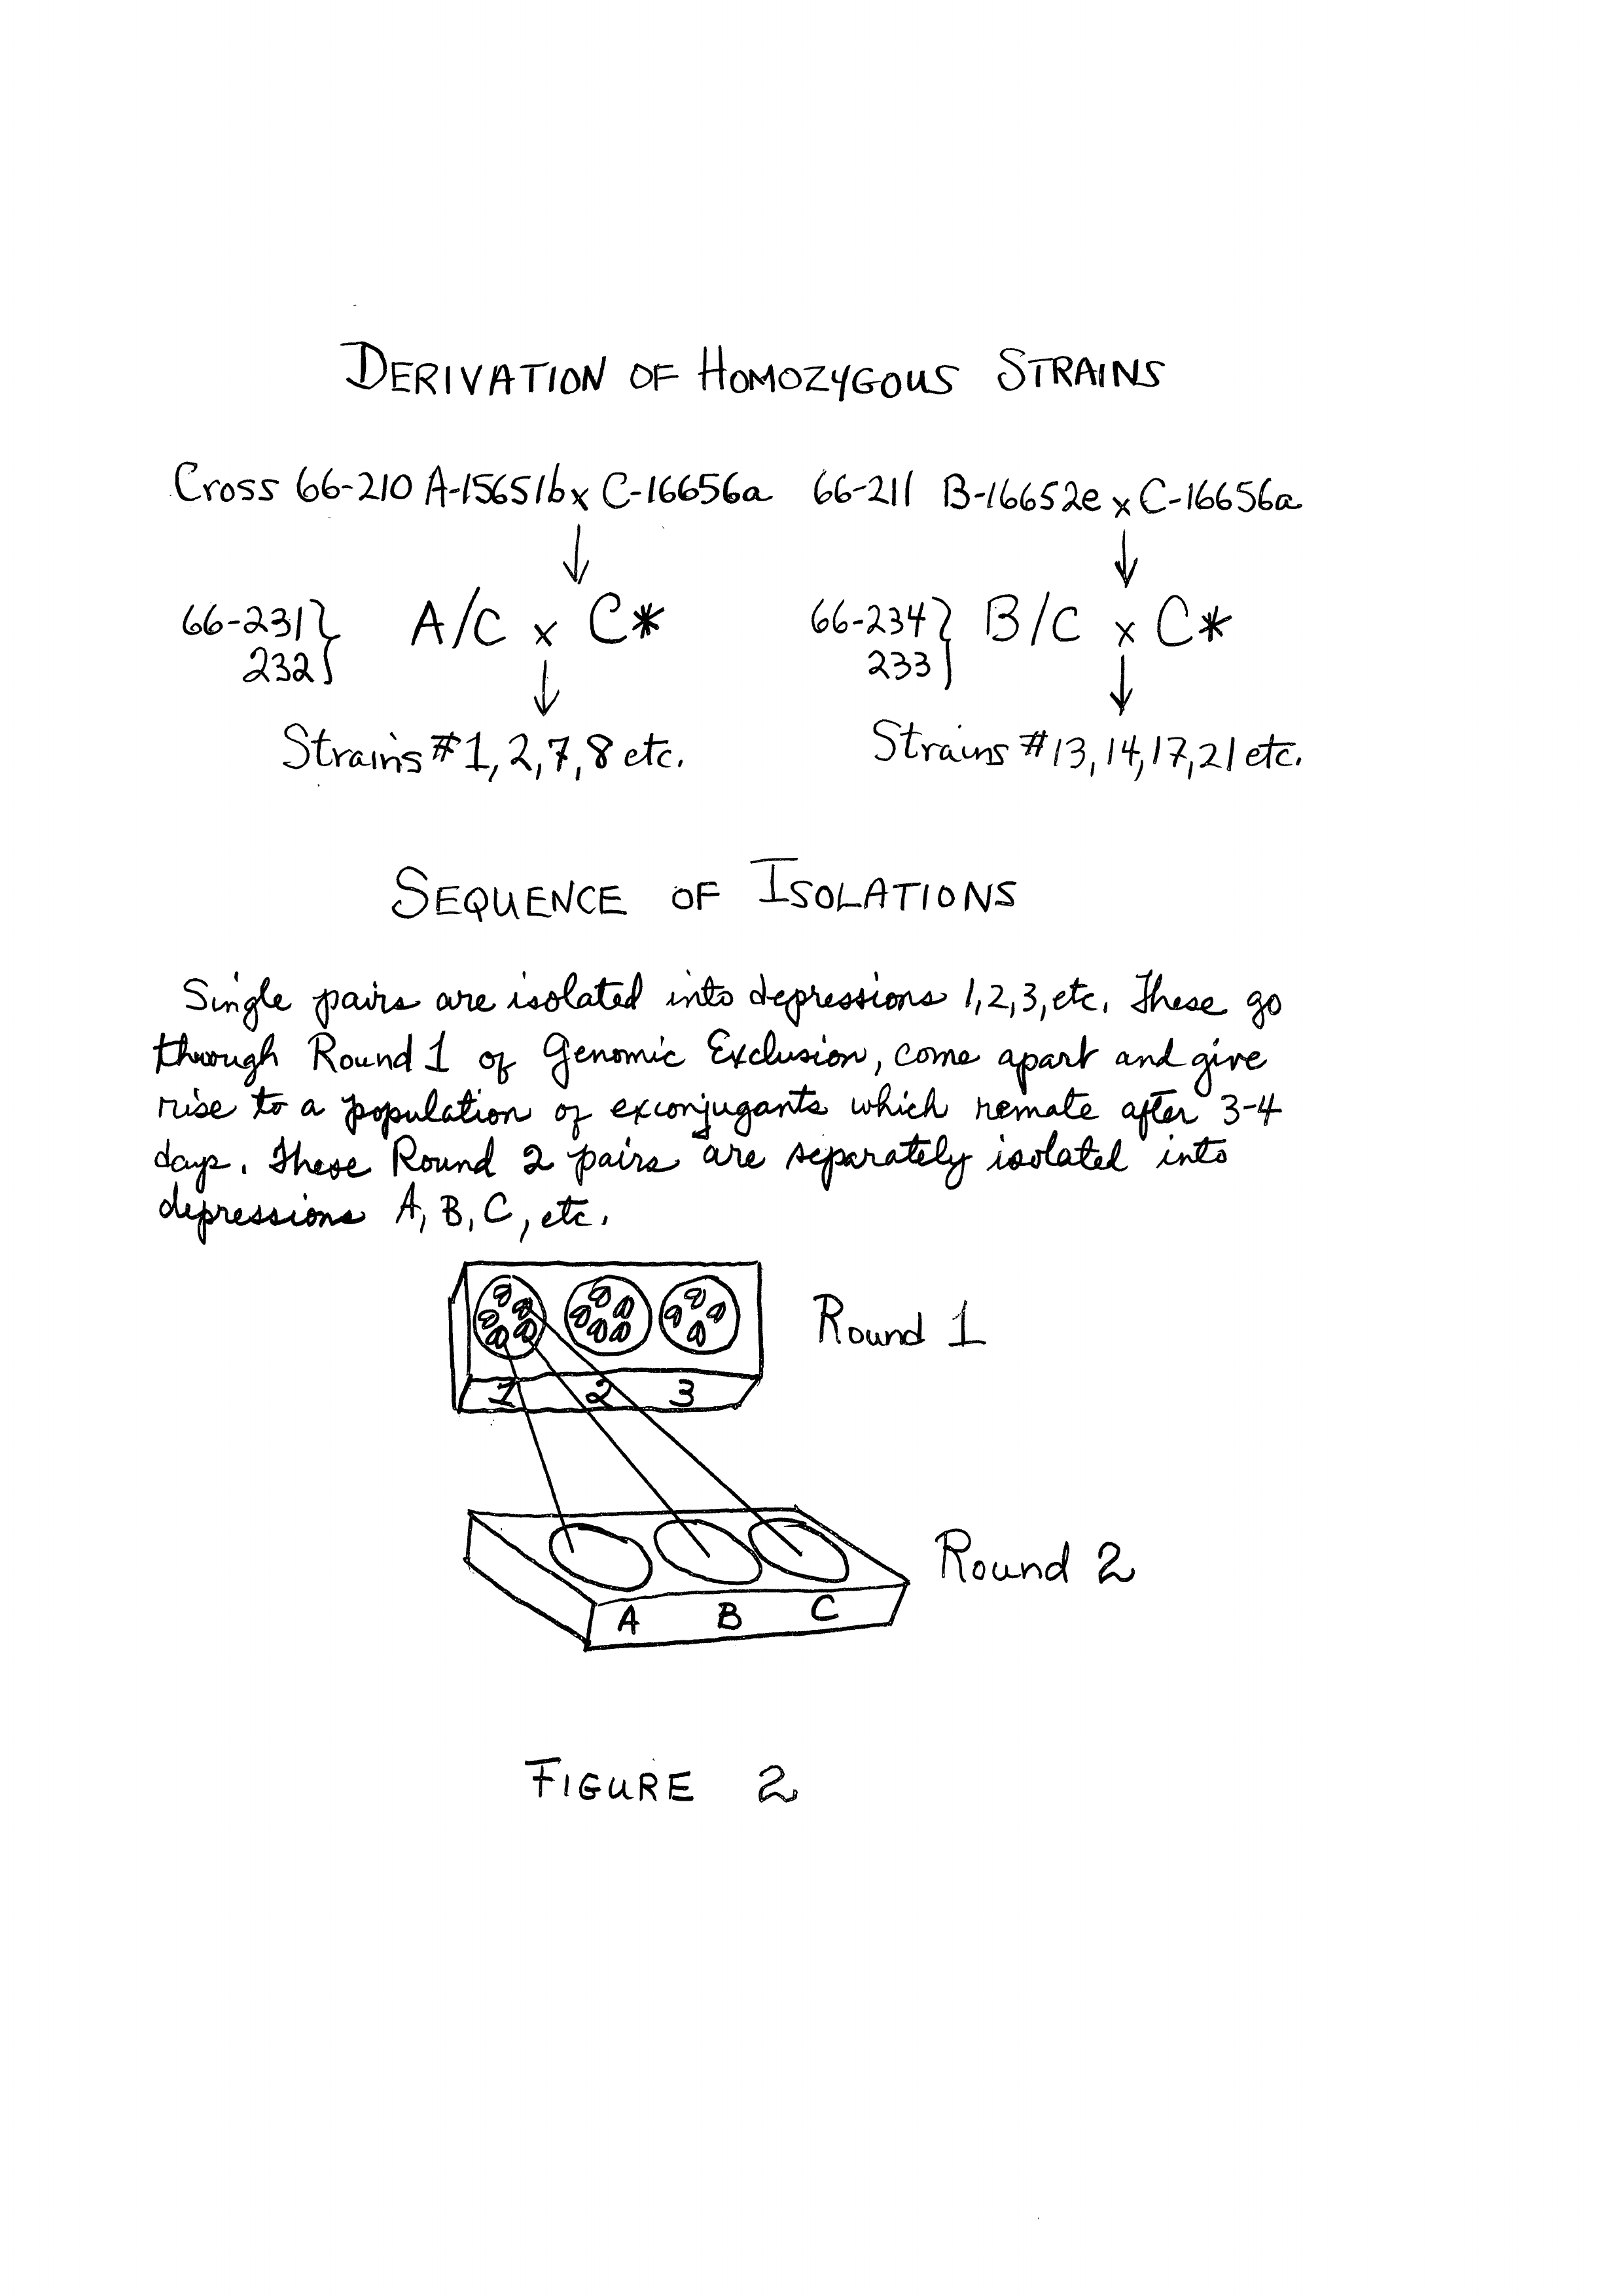 DERIVATION OF HOMOZYGOUS STRAINS
Cross 66-210 A-15651b x C-16656a 66-211 B-16652e x C-16656a
66-231} A/C x C* 66-234} B/C x C*
232} 233}
Strains #1, 2, 7, 8 etc. Strains #13, 14, 17, 21 etc.
SEQUENCE OF ISOLATIONS
Single pairs are isolated into depressions 1, 2, 3, etc. These go
through Round 1 of Genomic Exclusion, come apart and give
rise to a population of exconjugants which remate after 3-4
days. These Round 2 pairs are separately isolated into
depressions A, B, C, etc.
Round 1
1 2 3
Round 2
A B C
FIGURE 2